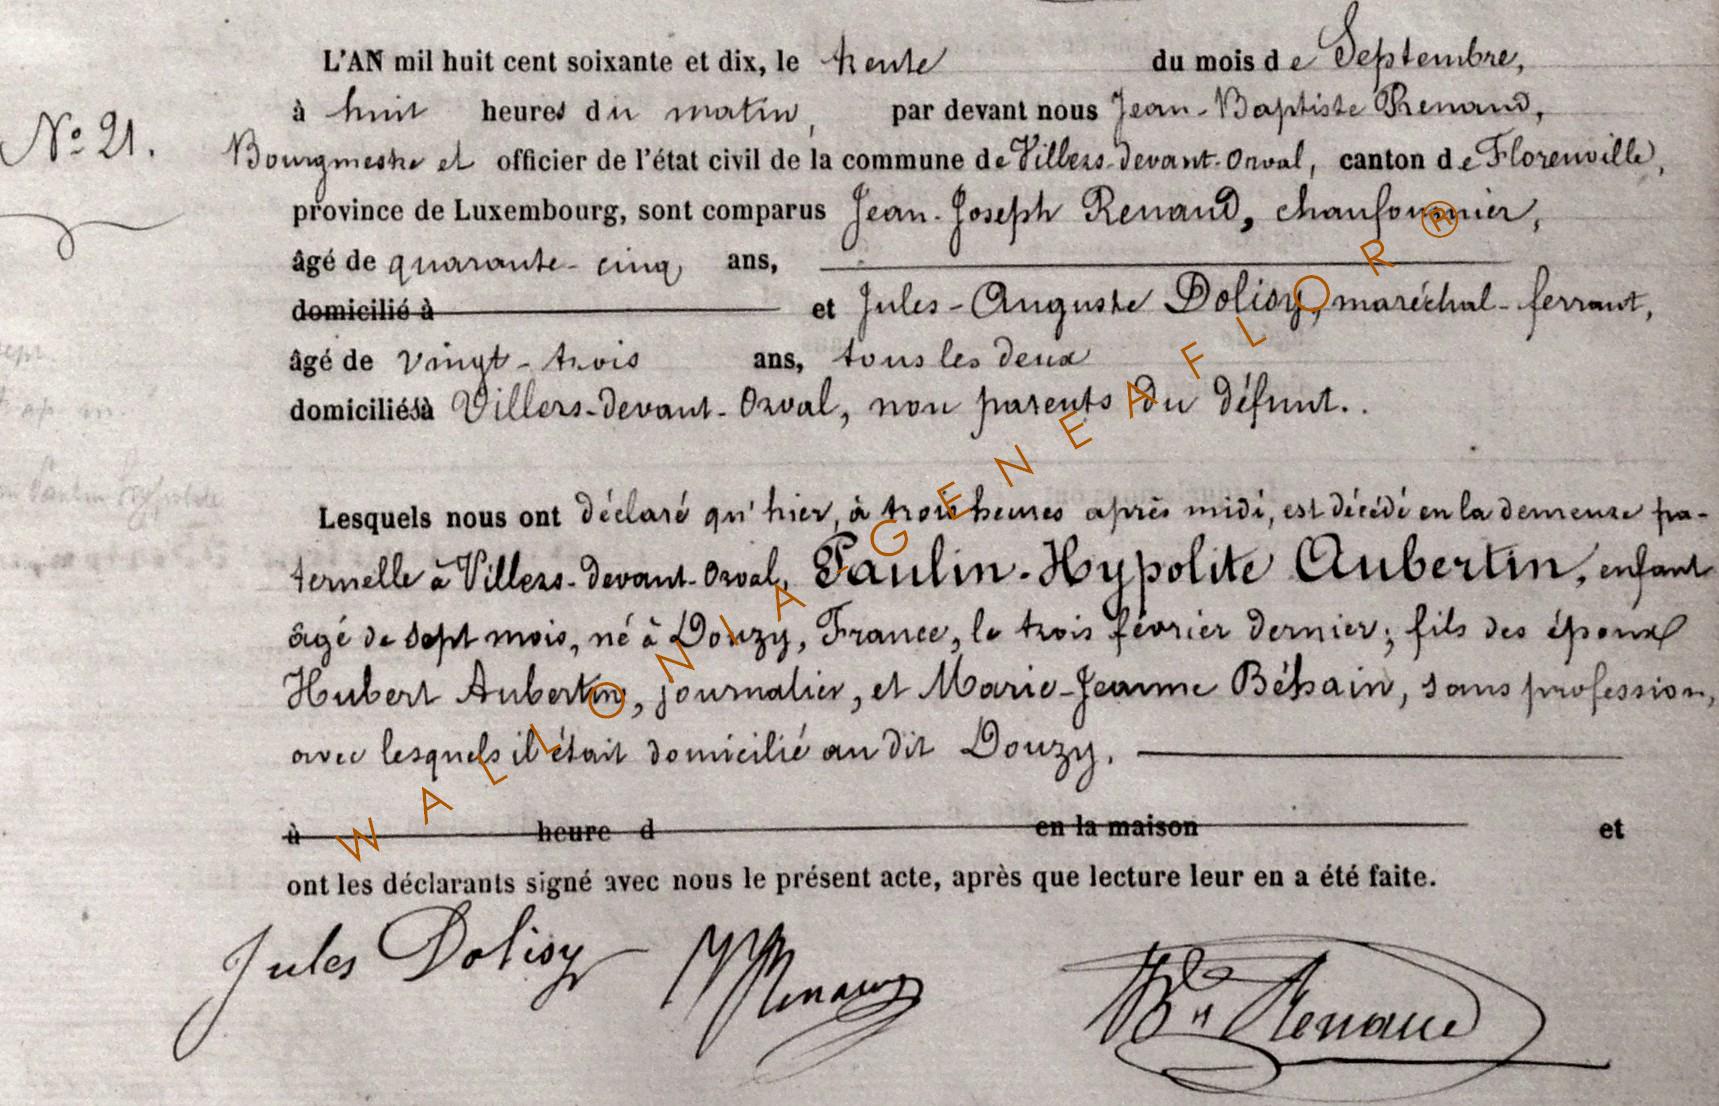 L'AN mil huit cent soixante et dix, le trente du mois de Septembre,
à huit heures du matin, par devant nous Jean-Baptiste Renaud,
N° 21.
Bourgmestre et officier de l'état civil de la commune de Villers-devant-Orval, canton de Florenville,
province de Luxembourg, sont comparus Jean-Joseph Renaud, chaufournier,
âgé de quarante-cinq ans,
domicilié à et Jules-Auguste Dolisy, maréchal-ferrant,
âgé de vingt-trois ans, tous les deux
domiciliés à Villers-devant-Orval, non parents du défunt.
Lesquels nous ont déclaré qu'hier, à trois heures après midi, est décédé en la demeure pa-
ternelle à Villers-devant-Orval, Paulin-Hypolite Aubertin, enfant
âgé de sept mois, né à Douzy, France, le trois février dernier; fils des époux
Hubert Aubertin, journalier, et Marie-Jeanne Béhain, sans profession,
avec lesquels il était domicilié au dit Douzy.
à heure d en la maison et
ont les déclarants signé avec nous le présent acte, après que lecture leur en a été faite.
Jules Dolisy Renaud Renaud
WALLONIA GENEAFLOR ®